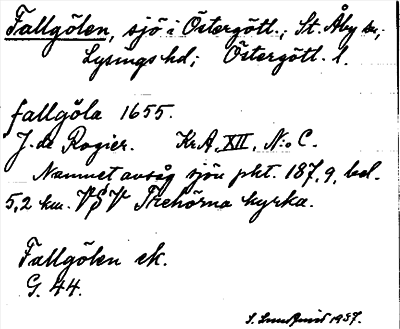 Fallgölen, sjö i Östergötl.; St. Åby sn;
Lysings hd; Östergötl. l.
fallgöla 1655.
J. de Rogier. Kr.A. XII, N:o C.
Namnet avsåg sjön pkt. 187,9, bel.
5,2 km. VSV Trehörna kyrka.
Fallgölen ek.
G. 44.
S. Lundqvist 1937.